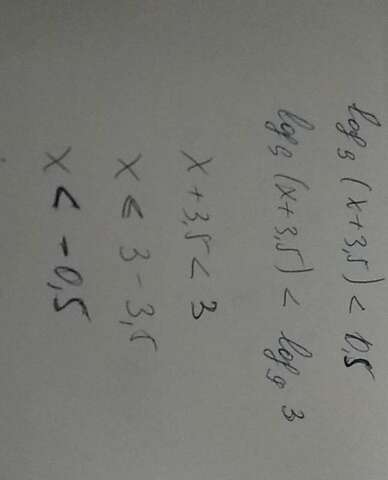 log₉ (x+3,5) < 0,5
log₉ (x+3,5) < log₉ 3
x+3,5 < 3
x < 3-3,5
x < -0,5